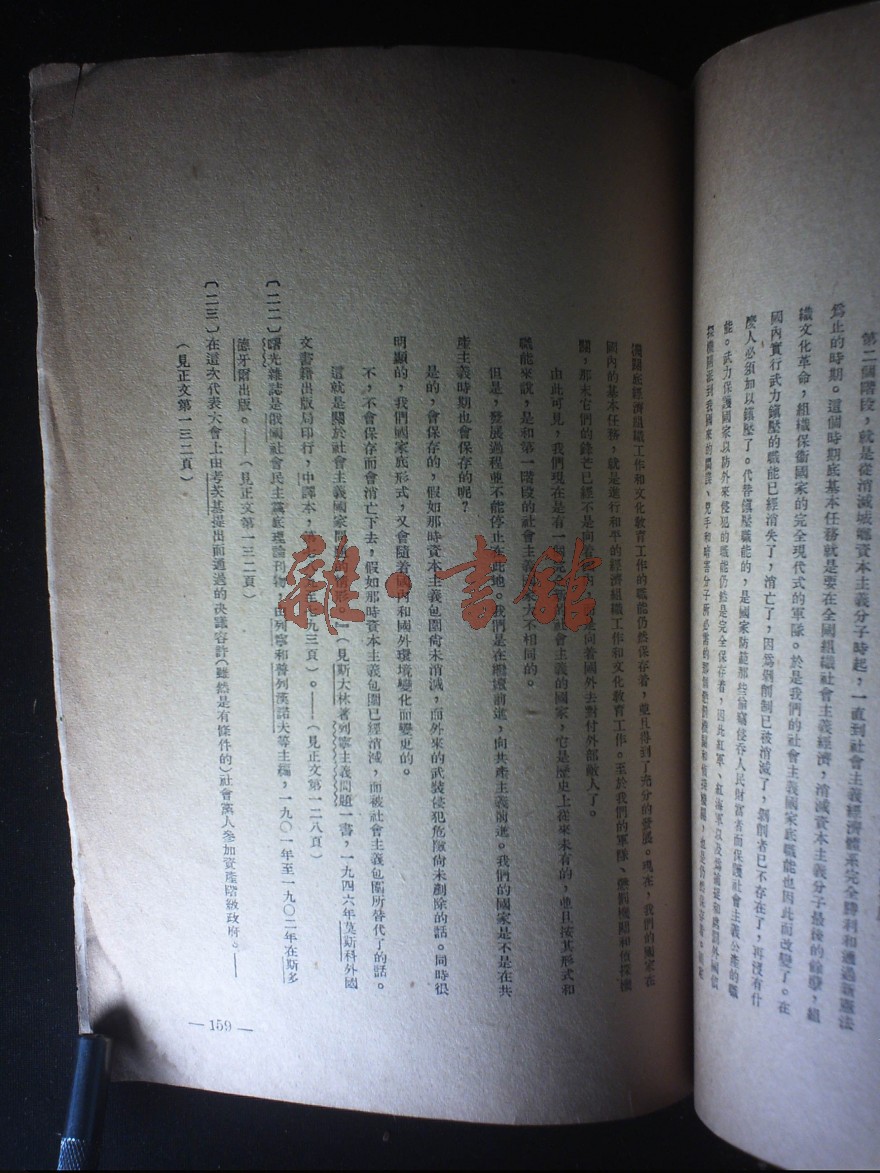 第二個階段，就是從消滅城鄉資本主義分子時起，一直到社會主義經濟體系完全勝利和通過新憲法
爲止的時期。這個時期底基本任務就是要在全國組織社會主義經濟，消滅資本主義分子最後的餘孽，組
織文化革命，組織保衞國家的完全現代式的軍隊。於是我們的社會主義國家底職能也因此而改變了。在
國內實行武力鎮壓的職能已經消失了，消亡了，因爲剝削制已被消滅了，剝削者已不存在了，再沒有什
麼人必須加以鎮壓了。代替鎮壓職能的，是國家防範那些偷竊侵吞人民財富者而保護社會主義公產的職
能。武力保護國家以防外來侵犯的職能仍然是完全保存着，因此紅軍、紅海軍以及
探機關派到我國來的間諜、兇手和暗害分子所必需的
機關底經濟組織工作和文化教育工作的職能仍然保存着，並且得到了充分的發展。現在，我們的國家在
國內的基本任務，就是進行和平的經濟組織工作和文化教育工作。至於我們的軍隊、懲罰機關和偵探機
關，那末它們的鋒芒已經不是向着國內，是向着國外去對付外部敵人了。
由此可見，我們現在是有一個完全社會主義的國家，它是歷史上從來未有的，並且按其形式和
職能來說，是和第一階段的社會主義大不相同的。
但是，發展過程並不能停止在此地。我們是在繼續前進，向共產主義前進。我們的國家是不是在共
產主義時期也會保存的呢？
是的，會保存的，假如那時資本主義包圍尚未消滅，而外來的武裝侵犯危險尚未剷除的話。同時很
明顯的，我們國家底形式，又會隨着國內和國外環境變化而變更的。
不，不會保存而會消亡下去，假如那時資本主義包圍已經消滅，而被社會主義包圍所替代了的話。
這就是關於社會主義國家問題的情形。』（見斯大林著列寧主義問題一書，一九四六年莫斯科外國
文書籍出版局印行，中譯本，九三頁）。——（見正文第一二八頁）
〔二二〕曙光雜誌是俄國社會民主黨底理論刊物，由列寧和普列漢諾夫等主編，一九〇一年至一九〇二年在斯多
德牙爾出版。——（見正文第一三二頁）
〔二三〕在這次代表大會上由考茨基提出而通過的決議容許（雖然是有條件的）社會黨人參加資產階級政府。——
（見正文第一三二頁）
— 159 —
雜·書館